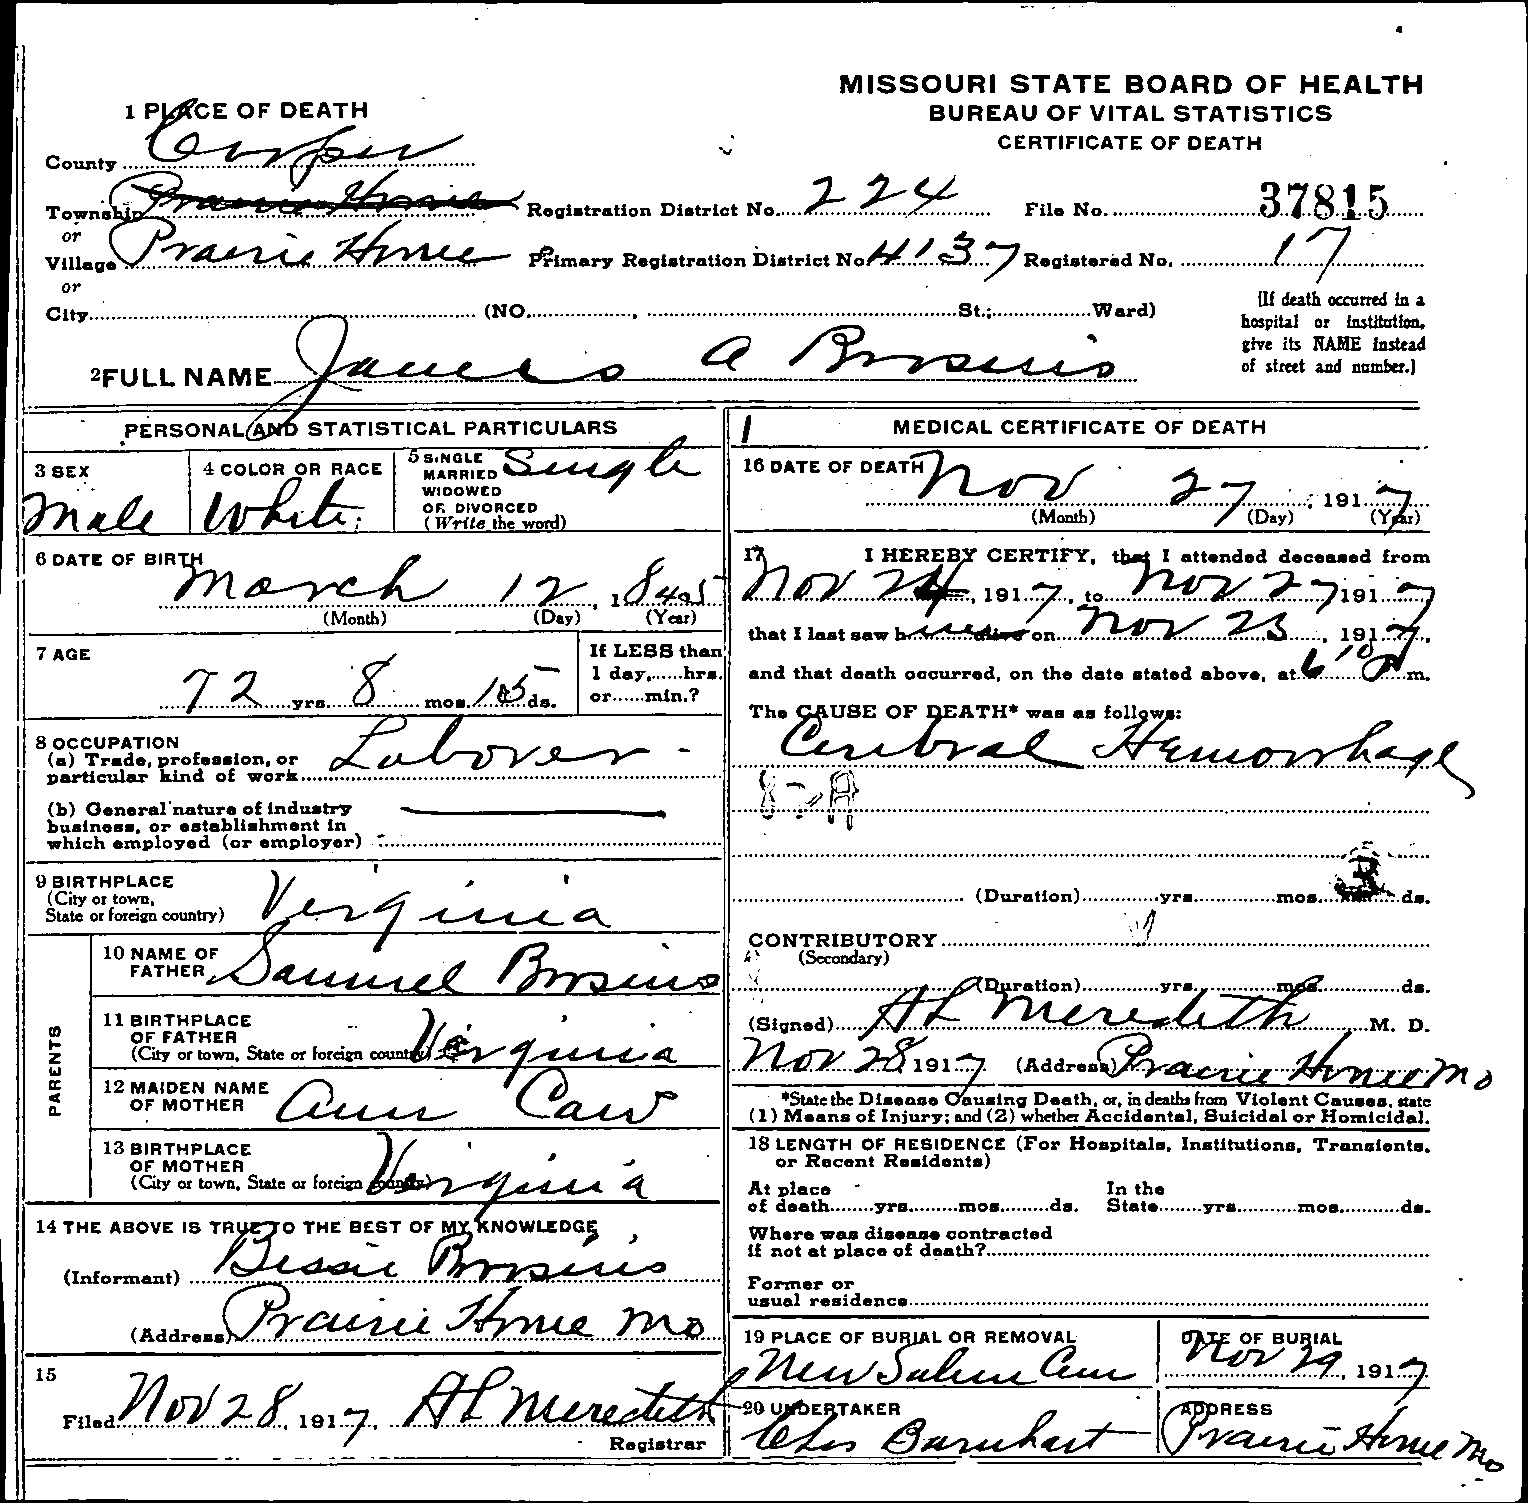 MISSOURI STATE BOARD OF HEALTH
BUREAU OF VITAL STATISTICS
CERTIFICATE OF DEATH
1 PLACE OF DEATH
County Cooper
Township Prairie Home Registration District No. 224 File No. 37815
or
Village Prairie Home Primary Registration District No 4137 Registered No. 17
or
City (NO. , St.; Ward)
[If death occurred in a
hospital or institution,
give its NAME instead
of street and number.]
2 FULL NAME James A Brosius
PERSONAL AND STATISTICAL PARTICULARS
3 SEX
Male
4 COLOR OR RACE
White
5 SINGLE
MARRIED
WIDOWED
OR DIVORCED
(Write the word)
Single
6 DATE OF BIRTH
March 12, 1845
(Month) (Day) (Year)
7 AGE
72 yrs. 8 mos. 15 ds.
If LESS than
1 day, hrs.
or min.?
8 OCCUPATION
(a) Trade, profession, or
particular kind of work Laborer
(b) General nature of industry
business, or establishment in
which employed (or employer)
9 BIRTHPLACE
(City or town,
State or foreign country) Virginia
PARENTS
10 NAME OF
FATHER Samuel Brosius
11 BIRTHPLACE
OF FATHER
(City or town, State or foreign country) Virginia
12 MAIDEN NAME
OF MOTHER Ann
13 BIRTHPLACE
OF MOTHER
(City or town, State or foreign country) Virginia
14 THE ABOVE IS TRUE TO THE BEST OF MY KNOWLEDGE
(Informant) Bessie Brosius
(Address) Prairie Home Mo
15
Filed Nov 28, 1917, AL Meredith
Registrar
1 MEDICAL CERTIFICATE OF DEATH
16 DATE OF DEATH Nov 27, 1917
(Month) (Day) (Year)
17 I HEREBY CERTIFY, that I attended deceased from
Nov 24, 1917, to Nov 27 1917
that I last saw h alive on Nov 23, 1917,
and that death occurred, on the date stated above, at 6 m.
The CAUSE OF DEATH* was as follows:
Cerebral Hemorrhage
(Duration) yrs. mos. 3 ds.
CONTRIBUTORY
(Secondary)
(Duration) yrs. mos. ds.
(Signed) AL Meredith M. D.
Nov 28 1917 (Address) Prairie Home Mo
*State the Disease Causing Death, or, in deaths from Violent Causes, state
(1) Means of Injury; and (2) whether Accidental, Suicidal or Homicidal.
18 LENGTH OF RESIDENCE (For Hospitals, Institutions, Transients,
or Recent Residents)
At place In the
of death yrs. mos. ds. State yrs. mos. ds.
Where was disease contracted
if not at place of death?
Former or
usual residence
19 PLACE OF BURIAL OR REMOVAL
New Salem Cem
DATE OF BURIAL
Nov 29, 1917
20 UNDERTAKER
Chas Barnhart
ADDRESS
Prairie Home Mo